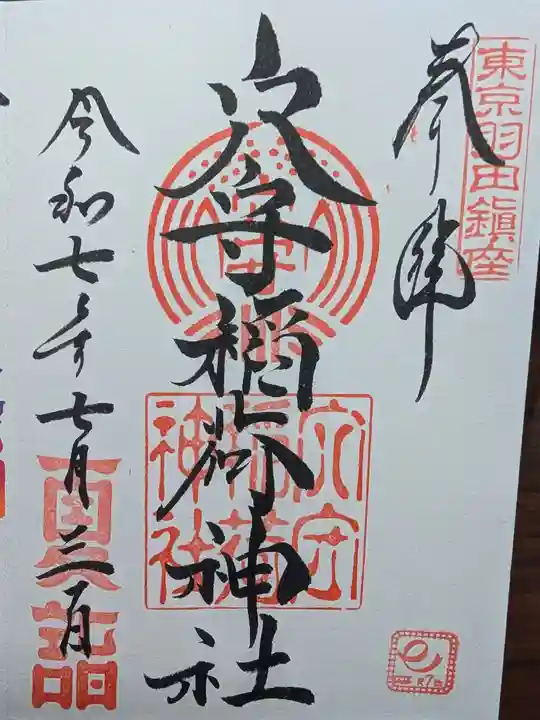 東京羽田鎮座
奉拝
穴守稲荷神社
穴守
稲荷
神社
令和七年七月三日